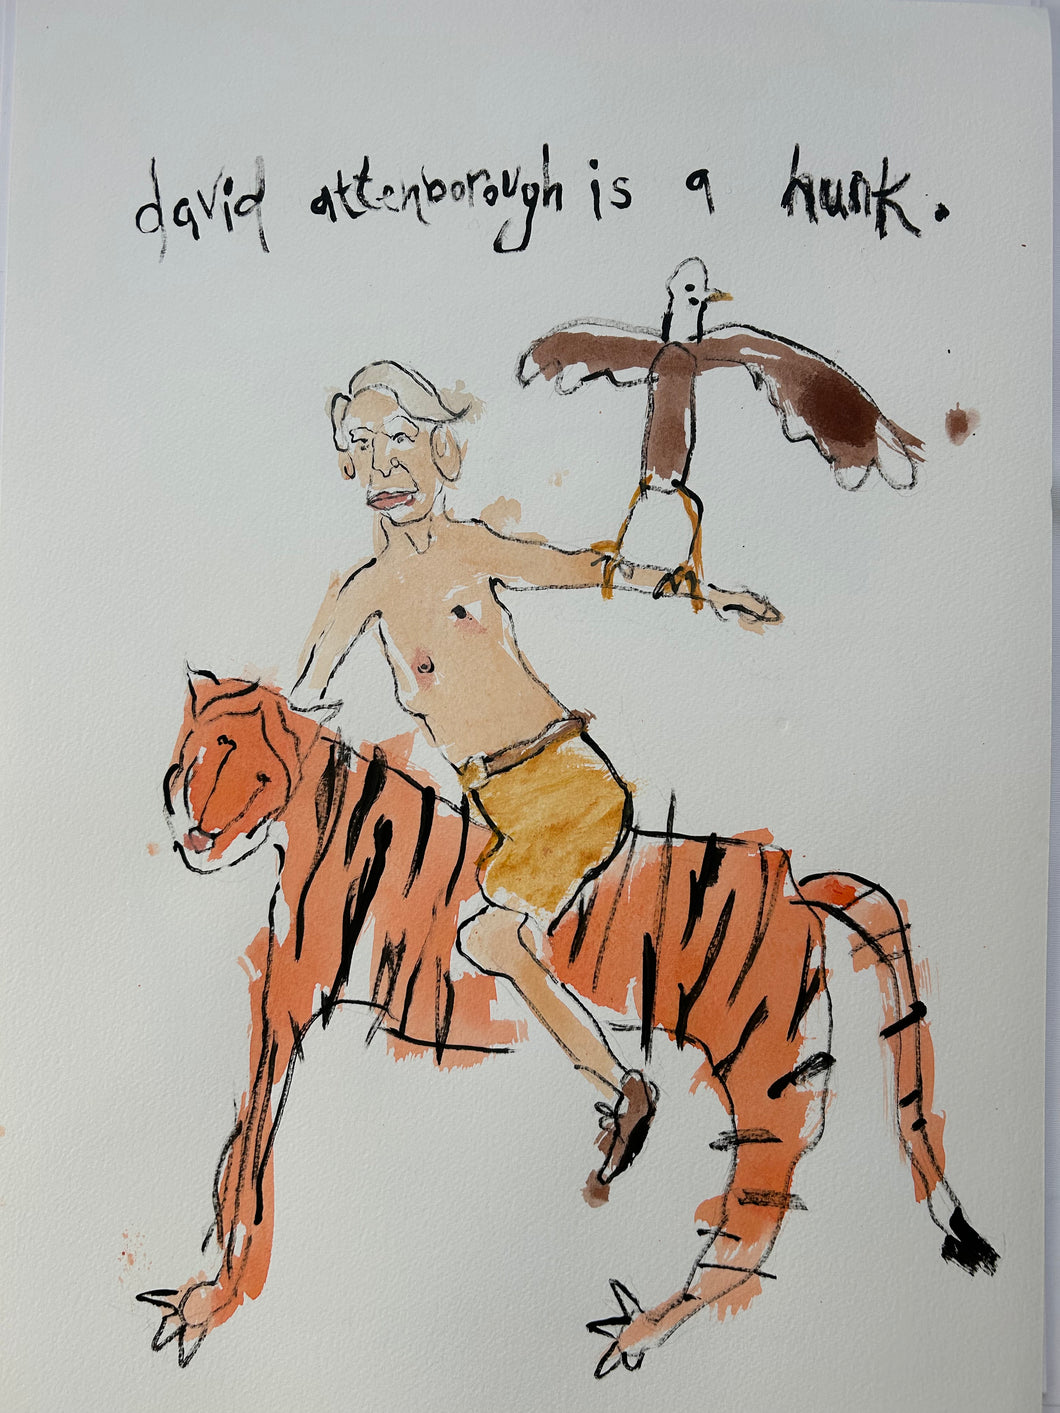 david attenborough is a hunk.